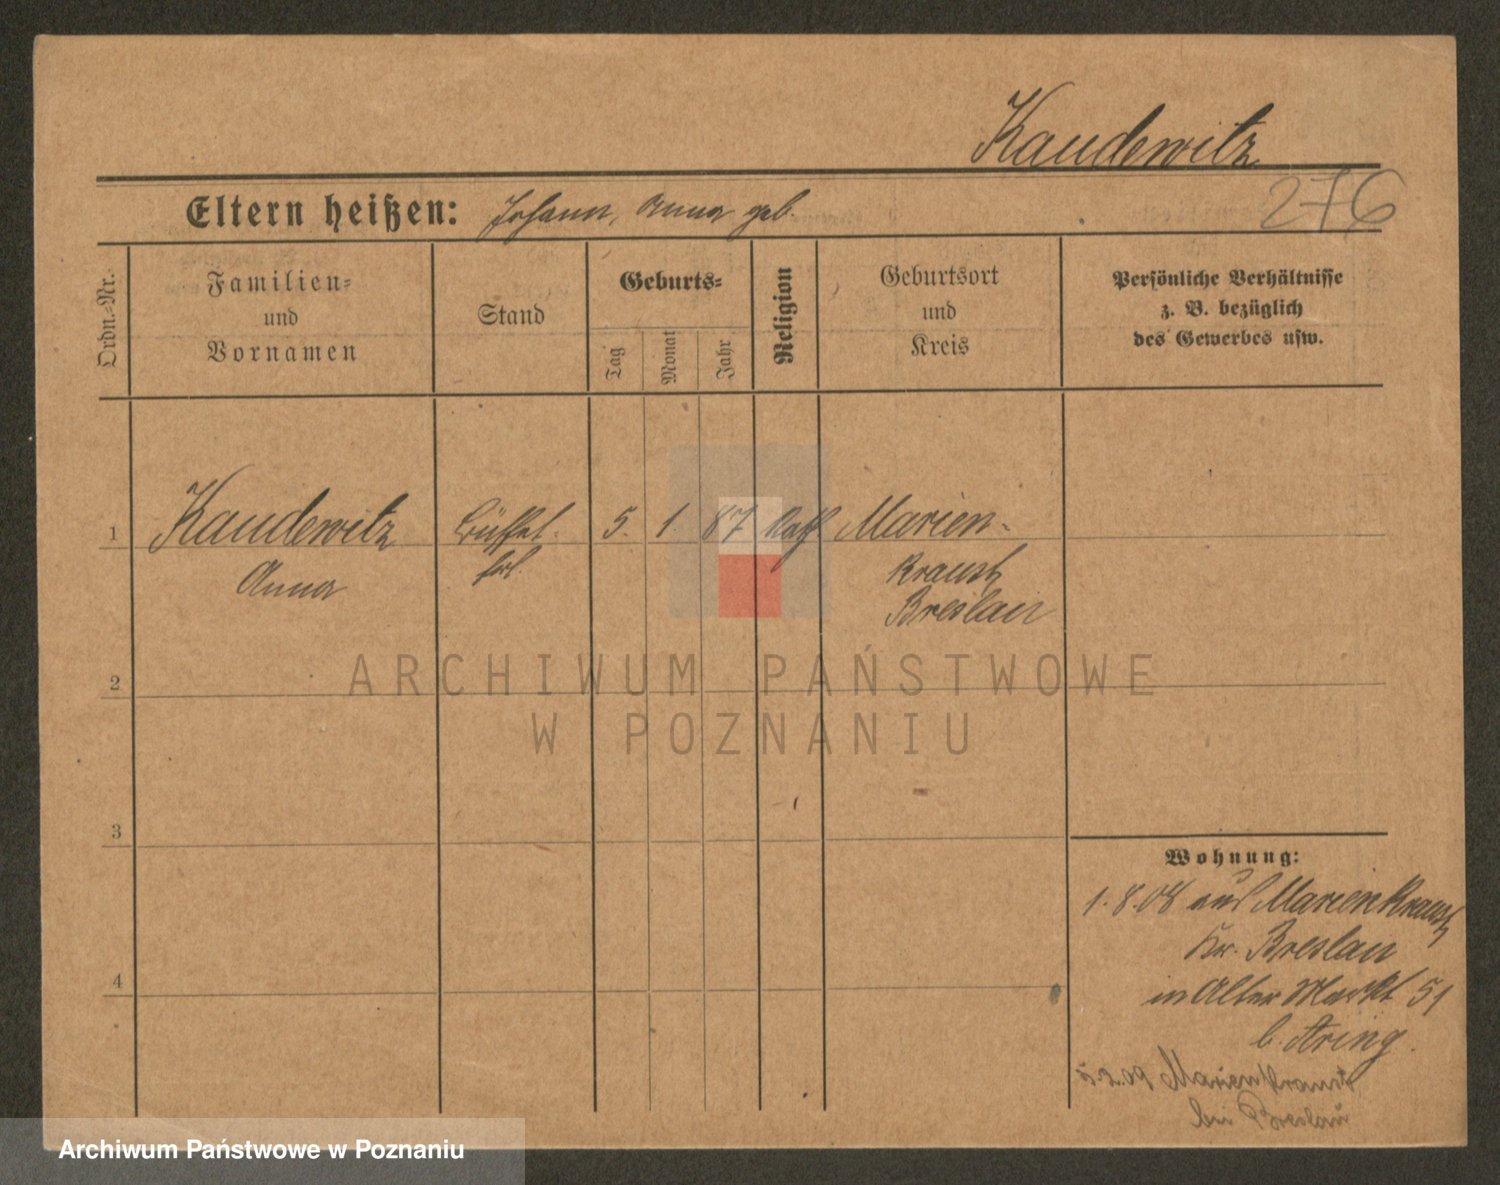 Kaudewitz
276
Eltern heißen: Johann, Anna geb.
Ordn.-Nr.
Familien-
und
Vornamen
Stand
Geburts-
Tag
Monat
Jahr
Religion
Geburtsort
und
Kreis
Persönliche Verhältnisse
z. B. bezüglich
des Gewerbes usw.
1 Kaudewitz Büffet- 5. 1. 87 Kath Marien-
Anna frl. kranst
Breslau
2
3
4
Wohnung:
1.8.08 aus Marienkranst
Kr. Breslau
in Alter Markt 51
b. Aring.
5.2.09 Marienkranst
bei Breslau
ARCHIWUM PAŃSTWOWE
W POZNANIU
Archiwum Państwowe w Poznaniu